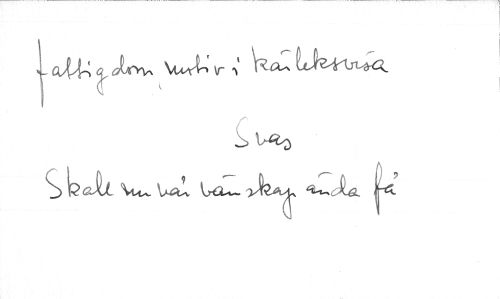 fattigdom, motiv i kärleksvisa
Svas
Skall nu vår vänskap ända få